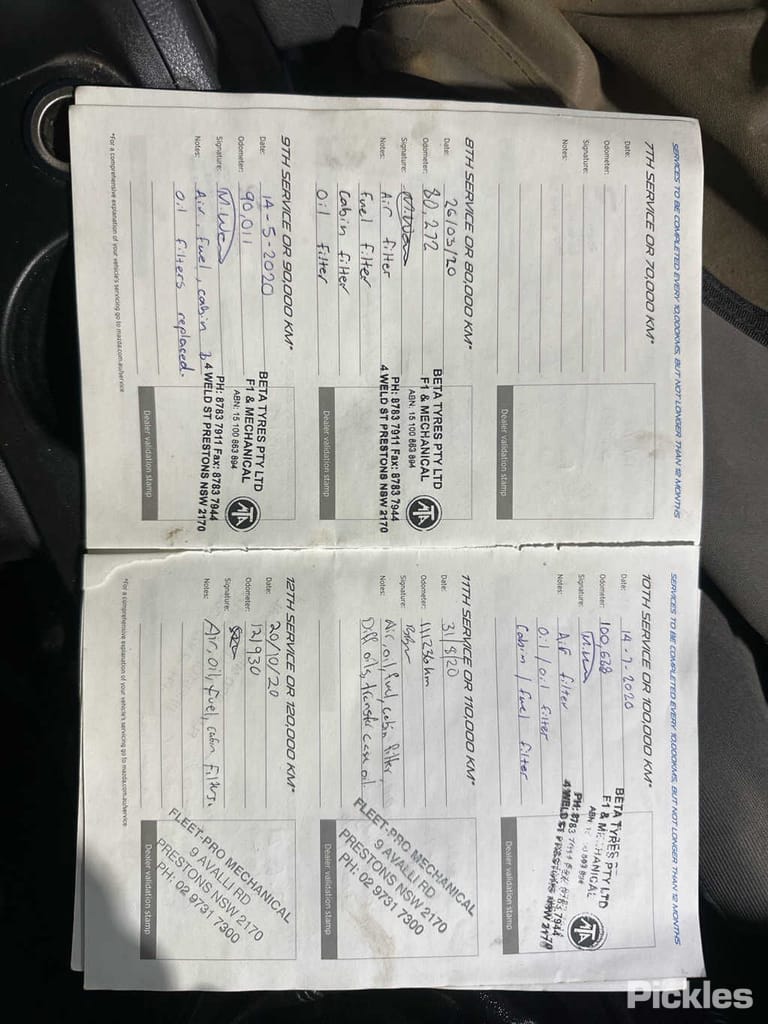 SERVICES TO BE COMPLETED EVERY 10,000KMS, BUT NOT LONGER THAN 12 MONTHS
7TH SERVICE OR 70,000 KM*
Date:
Odometer:
Signature:
Notes:
Dealer validation stamp
8TH SERVICE OR 80,000 KM*
Date: 26/03/20
Odometer: 80,272
Signature:
Notes: Air filter
fuel filter
Cabin filter
Oil filter
BETA TYRES PTY LTD
F1 & MECHANICAL
ABN: 15 100 863 894
PH: 8783 7911 Fax: 8783 7944
4 WELD ST PRESTONS NSW 2170
Dealer validation stamp
9TH SERVICE OR 90,000 KM*
Date: 14-5-2020
Odometer: 90,011
Signature:
Notes: Air, fuel, cabin &
oil filters replaced.
BETA TYRES PTY LTD
F1 & MECHANICAL
ABN: 15 100 863 894
PH: 8783 7911 Fax: 8783 7944
4 WELD ST PRESTONS NSW 2170
Dealer validation stamp
*For a comprehensive explanation of your vehicle's servicing go to mazda.com.au/service
SERVICES TO BE COMPLETED EVERY 10,000KMS, BUT NOT LONGER THAN 12 MONTHS
10TH SERVICE OR 100,000 KM*
Date: 14-7-2020
Odometer: 100,638
Signature:
Notes: Air filter
Oil / oil filter
Cabin / fuel filter
BETA TYRES PTY LTD
F1 & MECHANICAL
4 WELD ST PRESTONS NSW 2170
Dealer validation stamp
11TH SERVICE OR 110,000 KM*
Date: 31/8/20
Odometer: 111,236km
Signature:
Notes: Air, oil, fuel, cabin filter,
Diff oils, transfer case oil
FLEET-PRO MECHANICAL
9 AVALLI RD
PRESTONS NSW 2170
PH: 02 9731 7300
Dealer validation stamp
12TH SERVICE OR 120,000 KM*
Date: 20/10/20
Odometer: 121930
Signature:
Notes: Air, oil, fuel, cabin filters.
FLEET-PRO MECHANICAL
9 AVALLI RD
PRESTONS NSW 2170
PH: 02 9731 7300
Dealer validation stamp
*For a comprehensive explanation of your vehicle's servicing go to mazda.com.au/service
Pickles